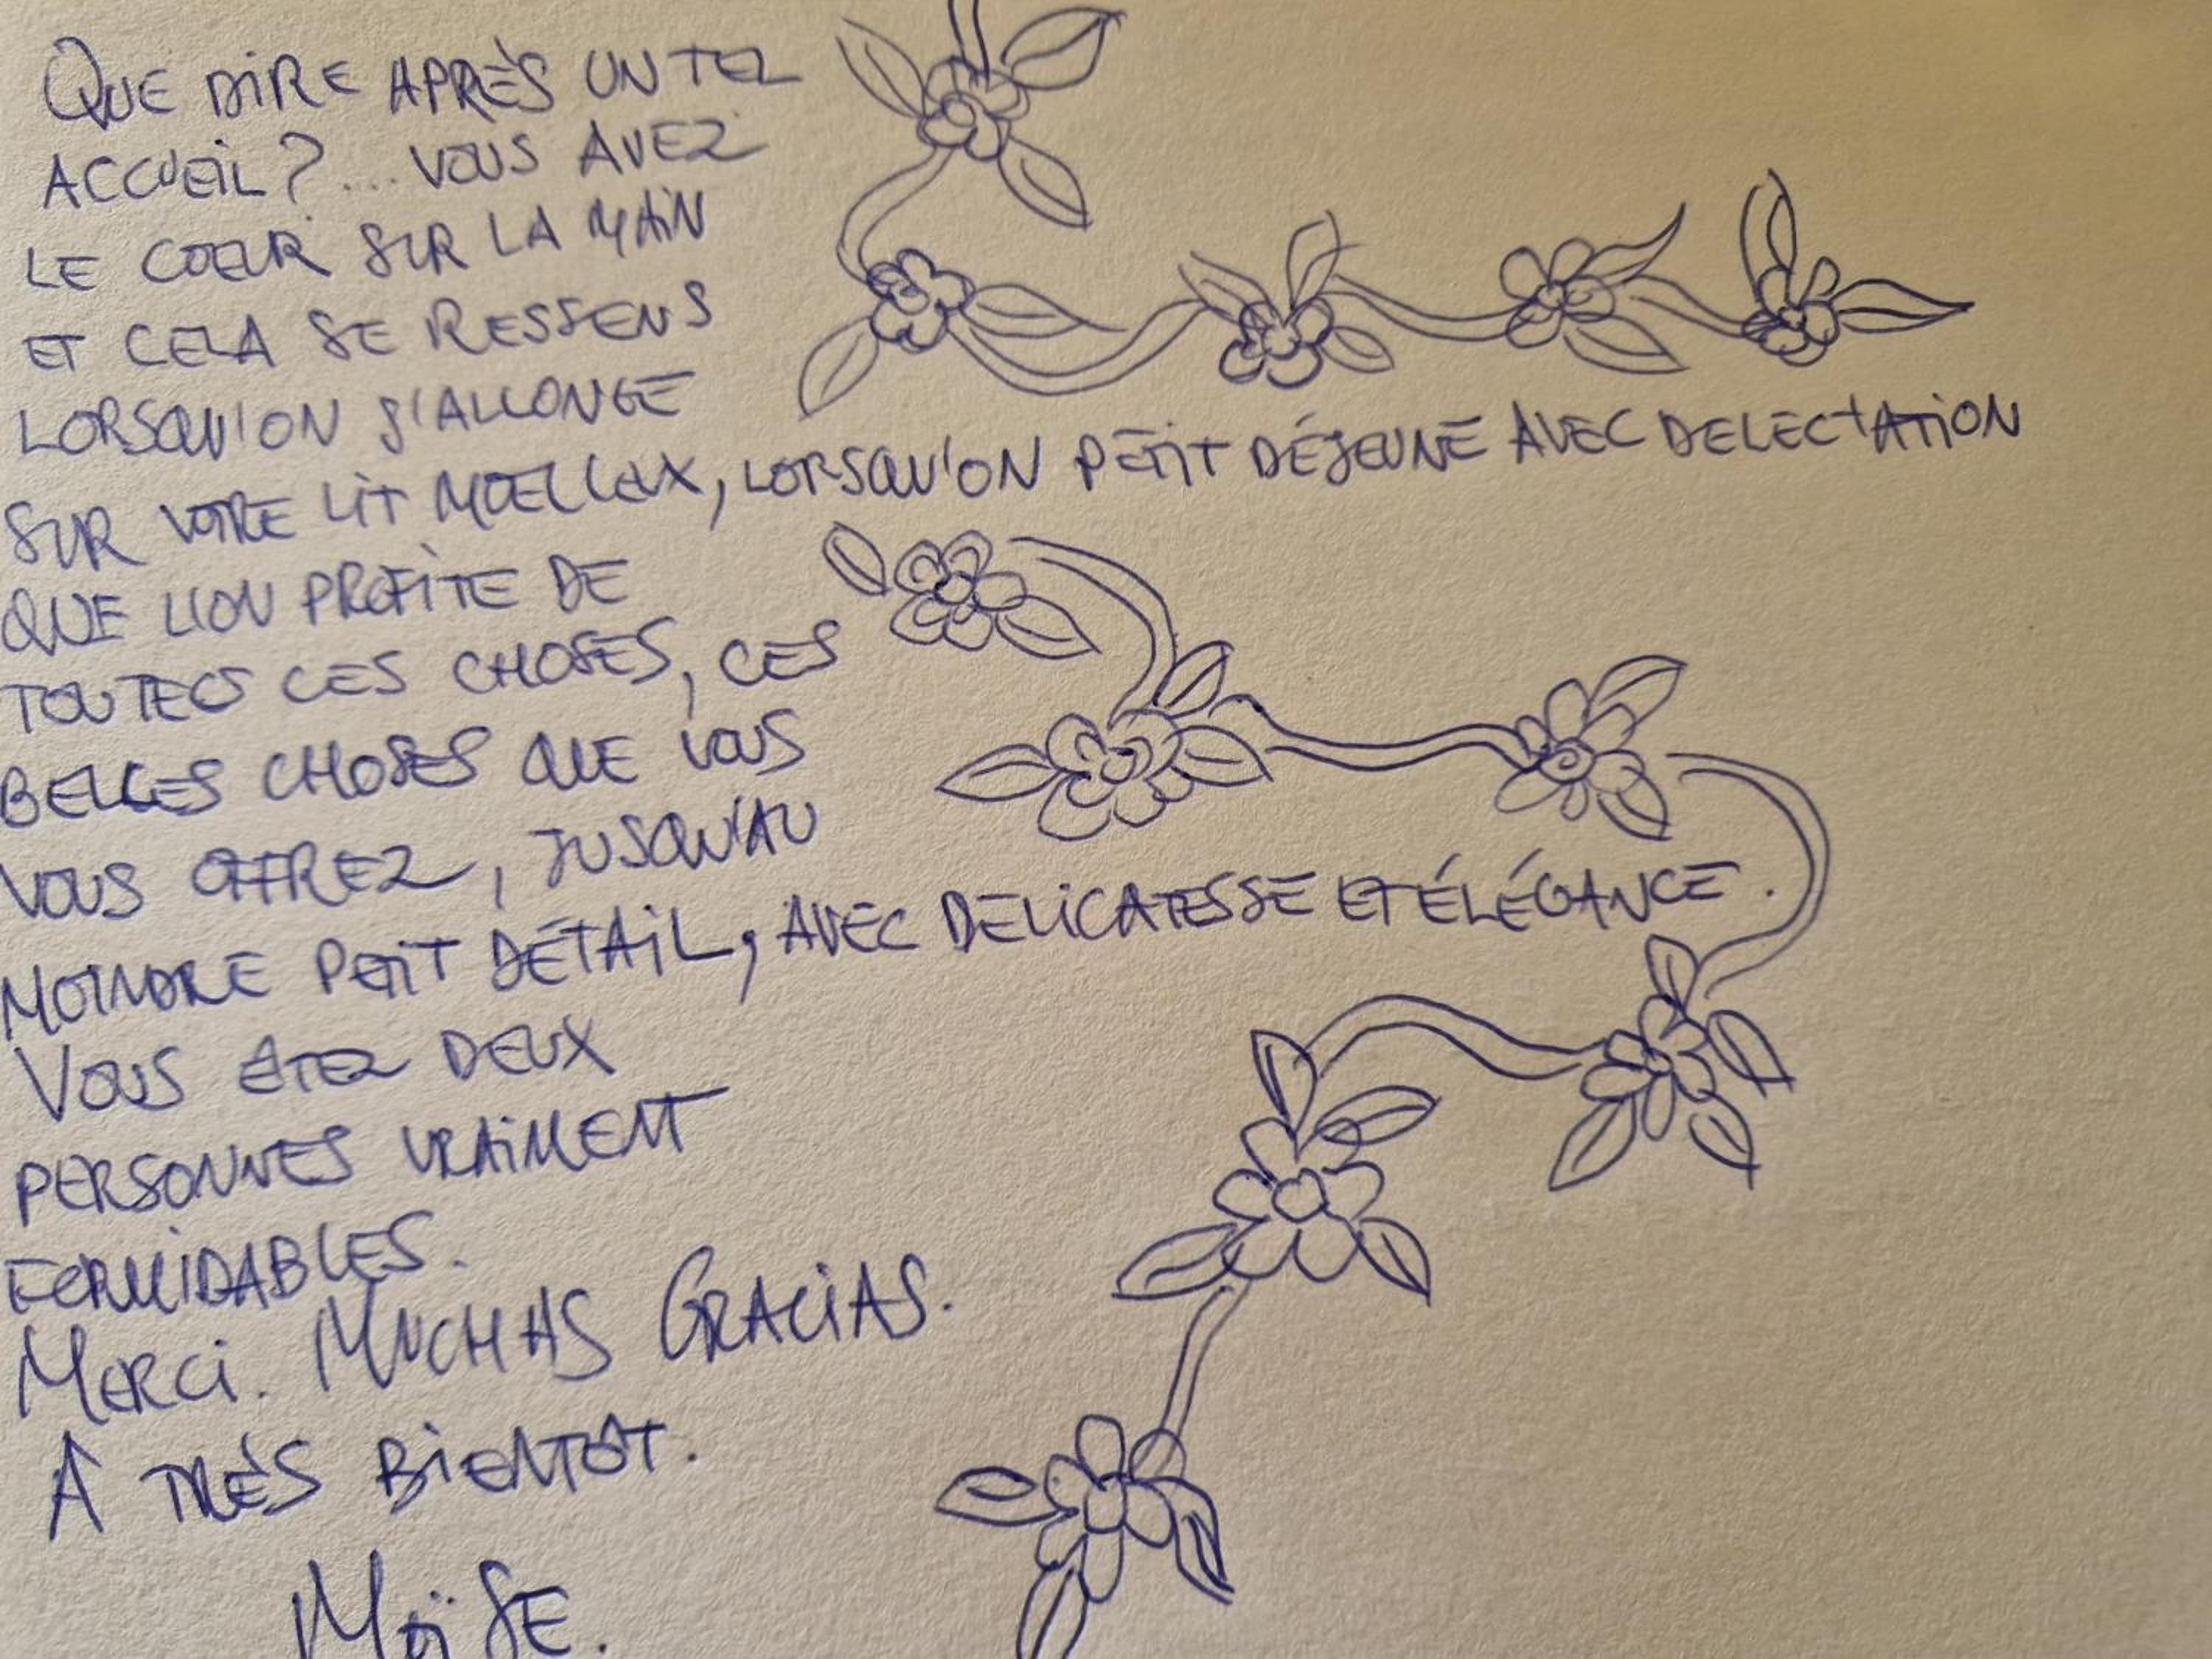 QUE DIRE APRÈS UN TEL
ACCUEIL ?... VOUS AVEZ
LE COEUR SUR LA MAIN
ET CELA SE RESSENS
LORSQU'ON S'ALLONGE
SUR VOTRE LIT MOELLEUX, LORSQU'ON PETIT DÉJEUNE AVEC DELECTATION
QUE L'ON PROFITE DE
TOUTES CES CHOSES, CES
BELLES CHOSES QUE VOUS
VOUS OFFREZ, JUSQU'AU
MOINDRE PETIT DÉTAIL, AVEC DELICATESSE ET ÉLÉGANCE.
VOUS ÊTEZ DEUX
PERSONNES VRAIMENT
FORMIDABLES.
MERCI. MUCHAS GRACIAS.
À TRÈS BIENTÔT.
MOÏSE.